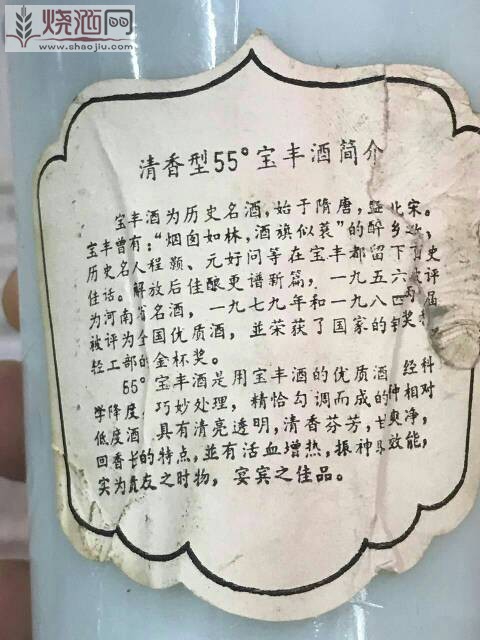 烧酒网
www.shaojiu.com
清香型55°宝丰酒简介
宝丰酒为历史名酒,始于隋唐,盛北宋。
宝丰曾有:“烟囱如林,酒旗似蓑”的醉乡
历史名人程颢、元好问等在宝丰都留下 史
佳话。解放后佳酿更谱新篇,一九五六被评
为河南省名酒,一九七九年和一九八四两届
被评为全国优质酒,並荣获了国家的 奖
轻工部的金杯奖。
55°宝丰酒是用宝丰酒的优质酒 经科
学降度,巧妙处理,精恰勾调而成的 相对
低度酒 具有清亮透明,清香芬芳, 爽净,
回香长的特点,並有活血增热,振神 效能,
实为 友之时物,宴宾之佳品。